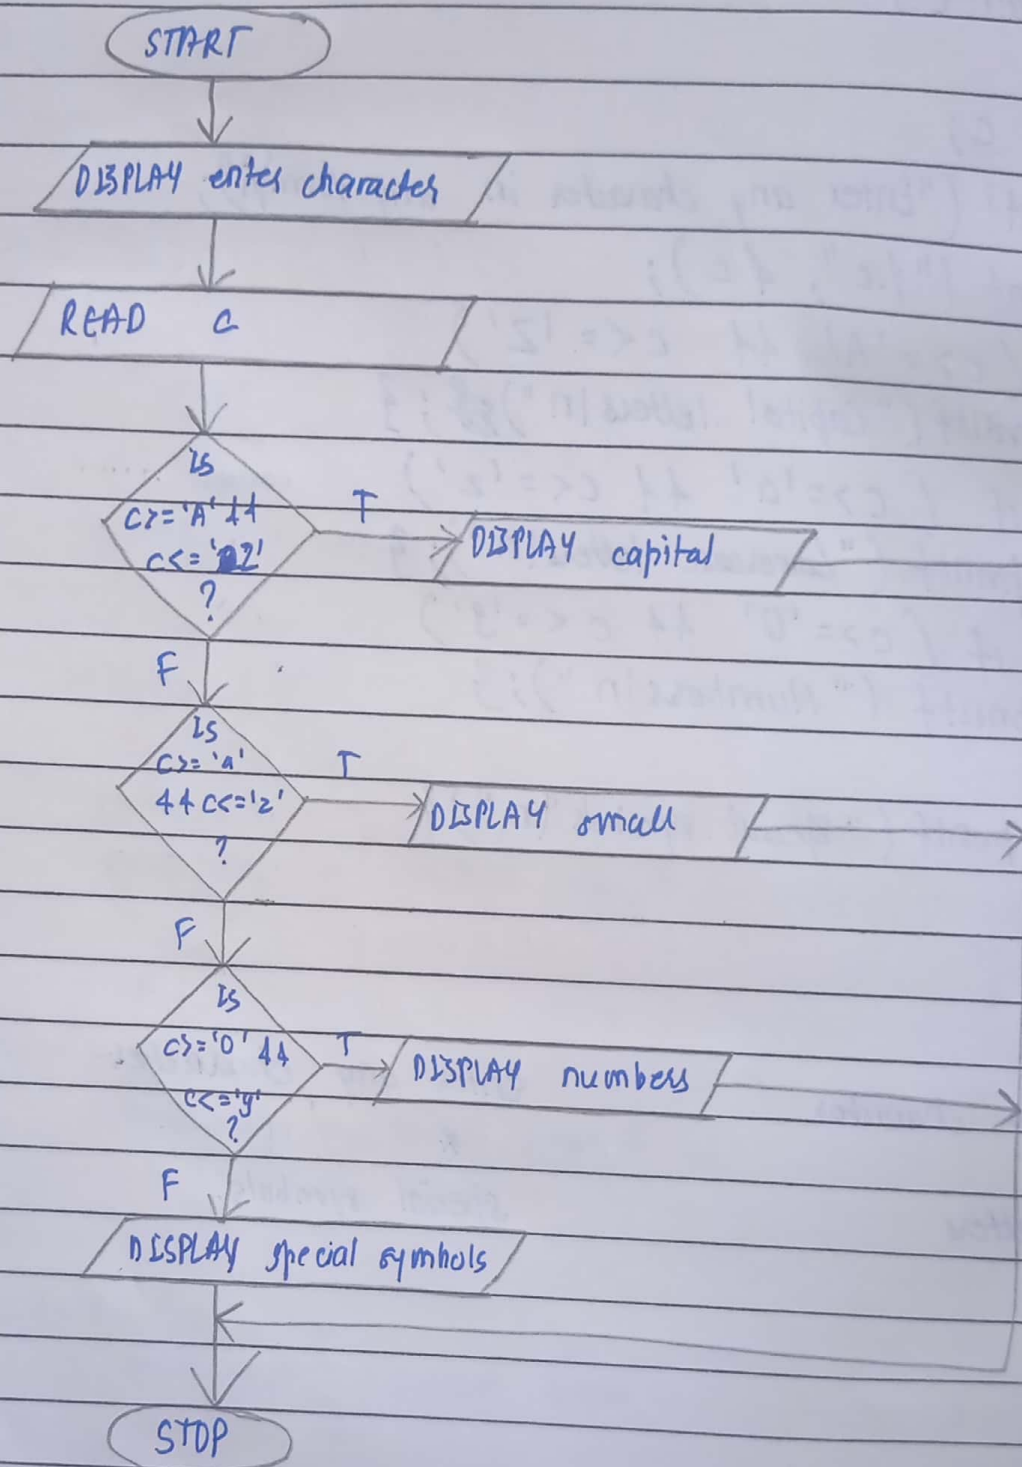 START
DISPLAY enter character
READ c
Is
c>='A' &&
c<='Z'
?
T
DISPLAY capital
F
Is
c>='a'
&& c<='z'
?
T
DISPLAY small
F
Is
c>='0' &&
c<='9'
?
T
DISPLAY numbers
F
DISPLAY special symbols
STOP